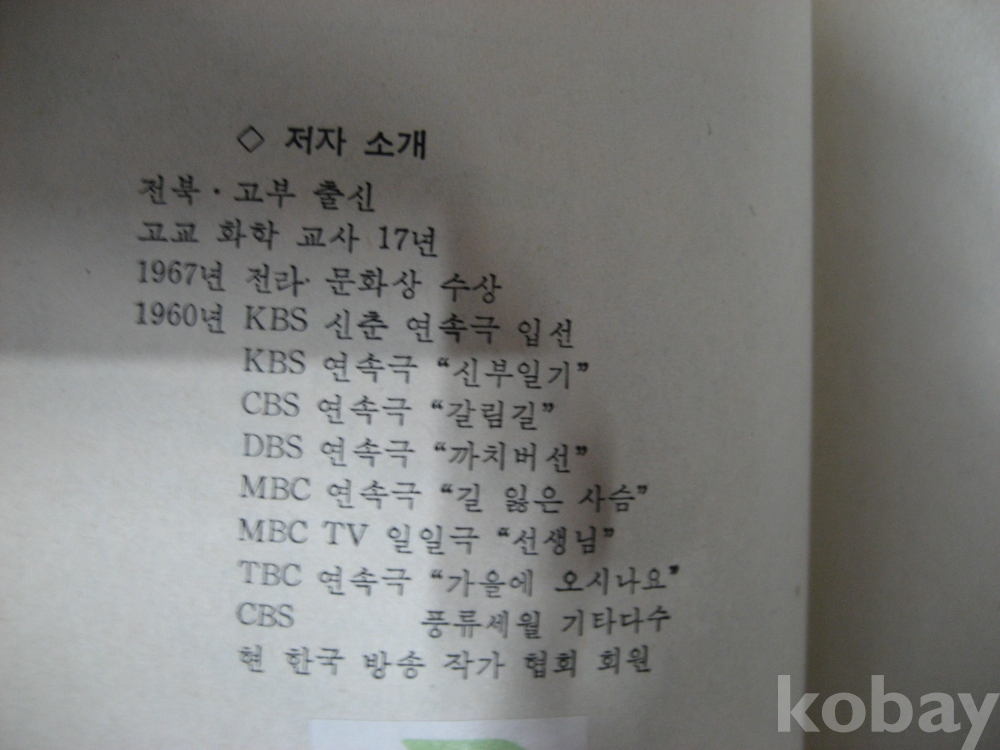 ◇ 저자 소개
전북·고부 출신
고교 화학 교사 17년
1967년 전라· 문화상 수상
1960년 KBS 신춘 연속극 입선
KBS 연속극 “신부일기”
CBS 연속극 “갈림길”
DBS 연속극 “까치버선”
MBC 연속극 “길 잃은 사슴”
MBC TV 일일극 “선생님”
TBC 연속극 “가을에 오시나요”
CBS 풍류세월 기타다수
현 한국 방송 작가 협회 회원
kobay